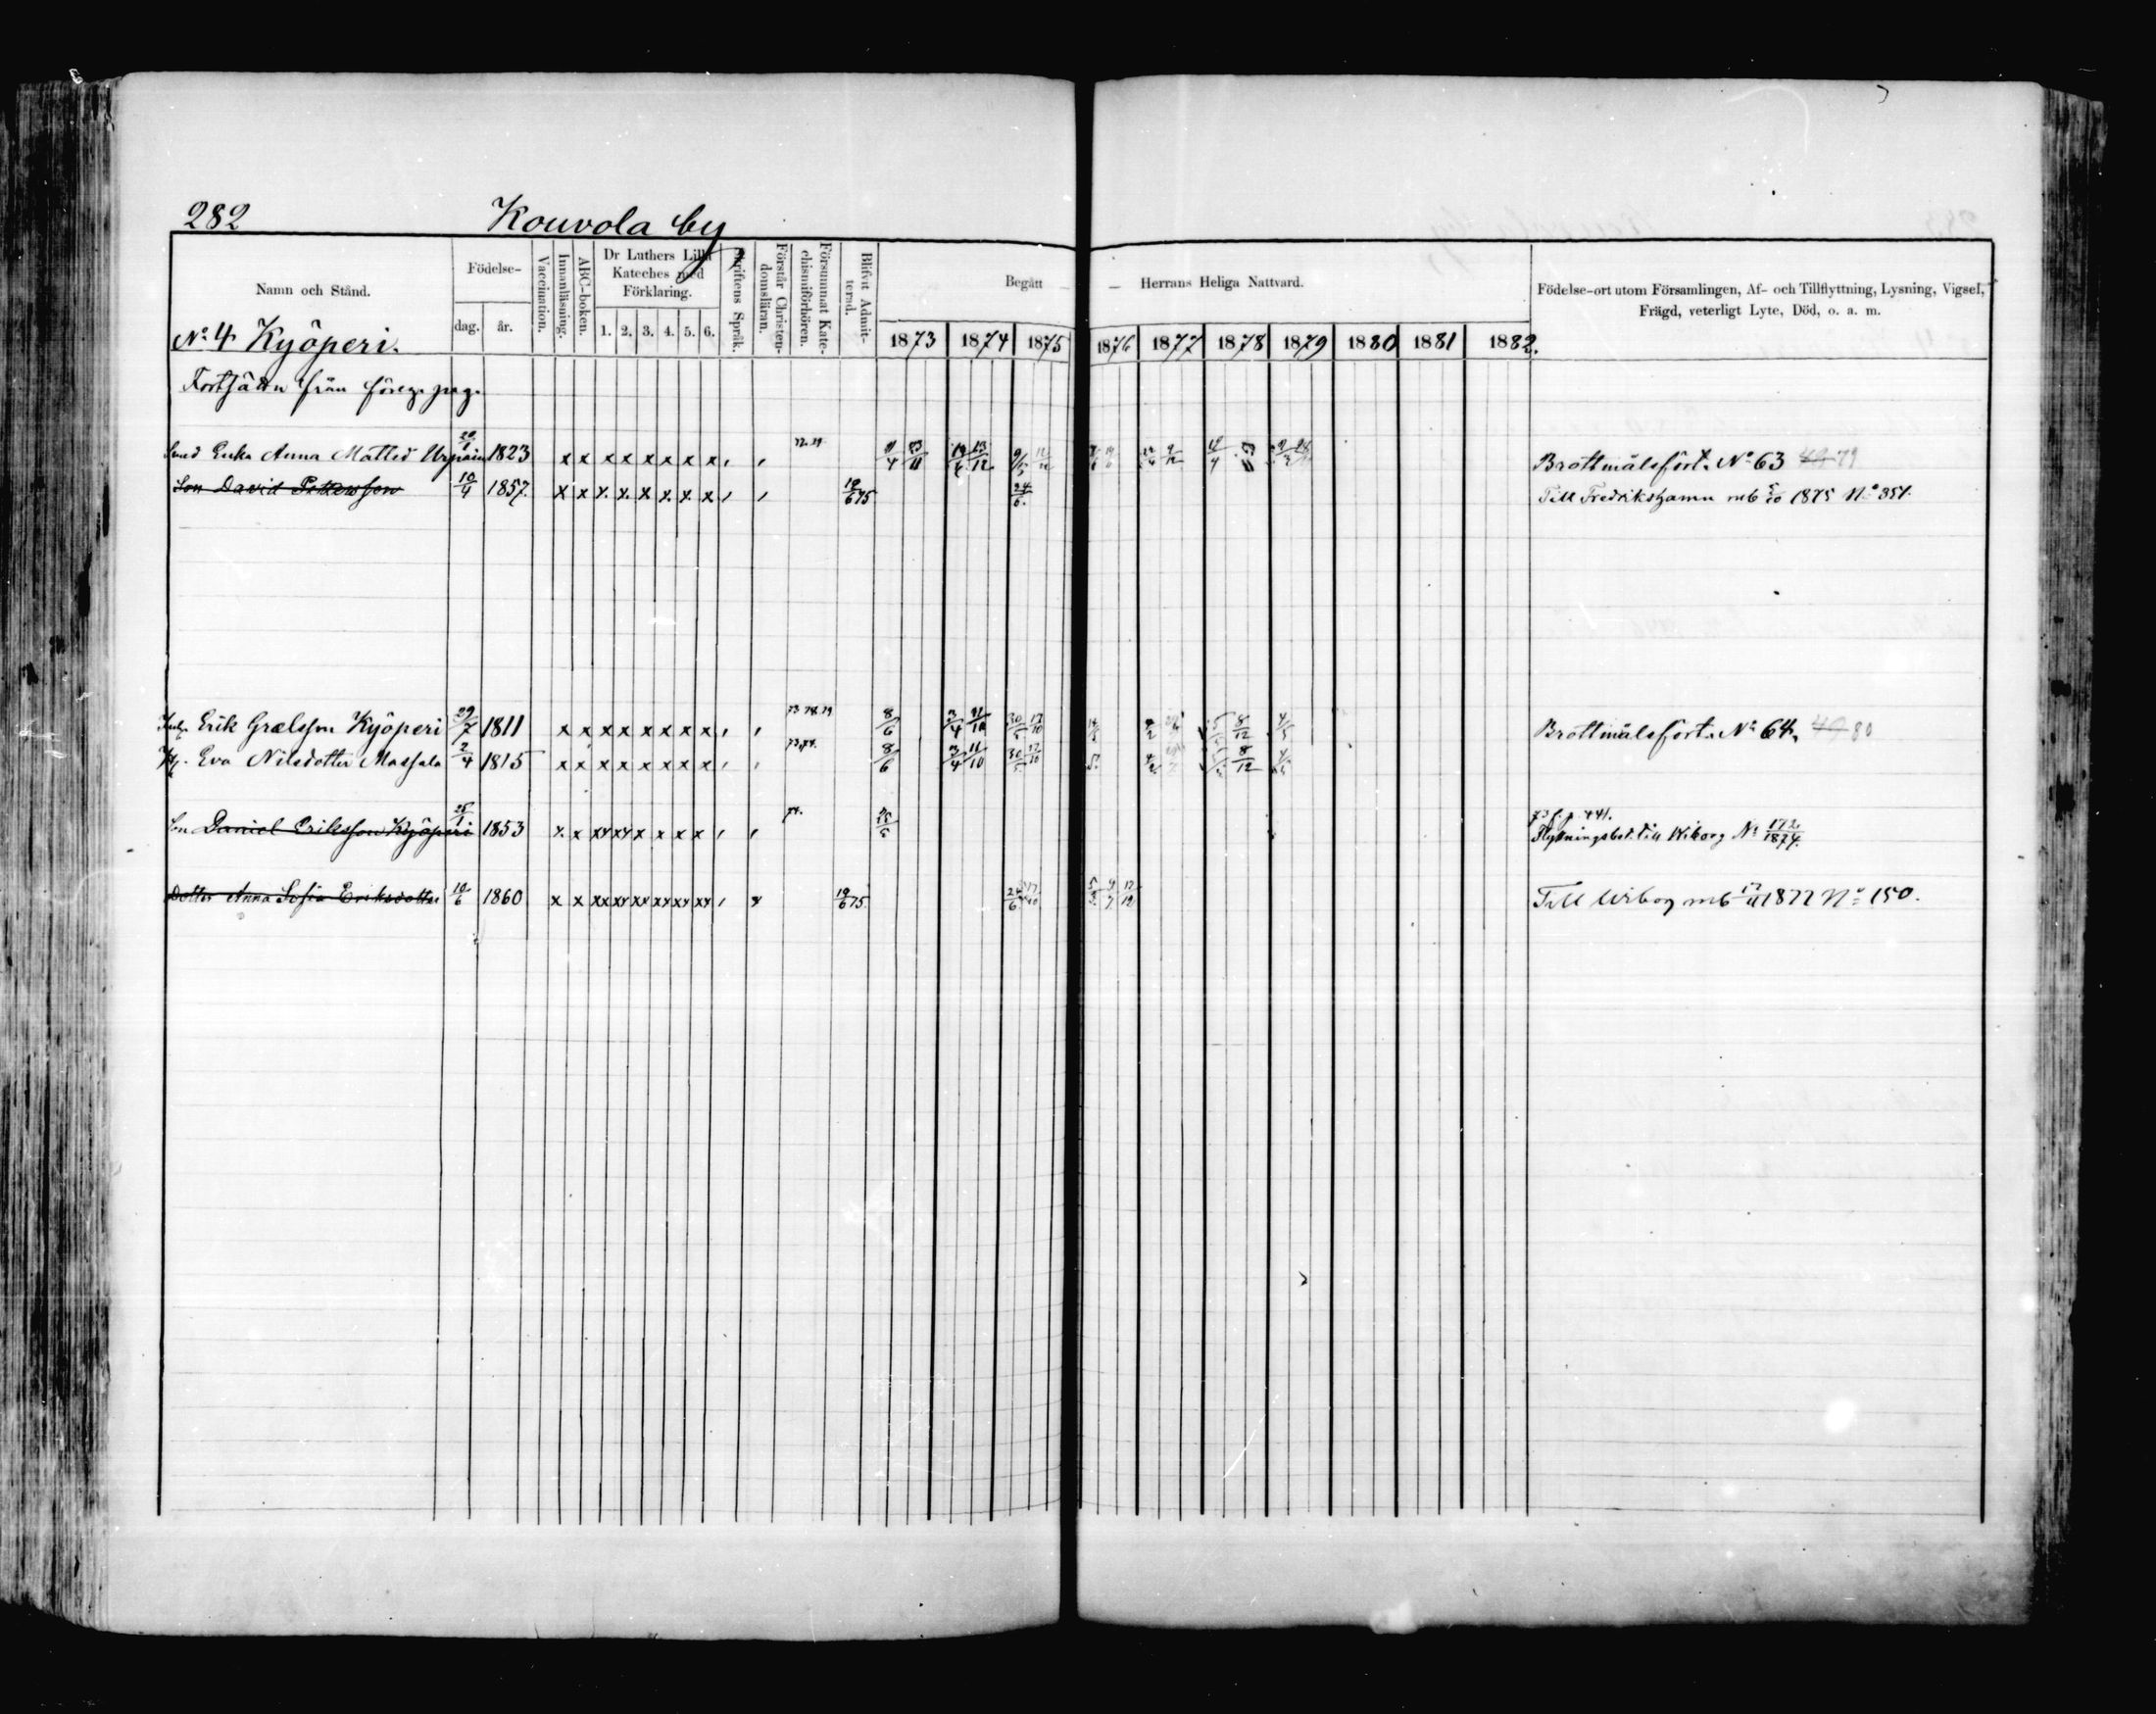 282 Kouvola by
Namn och Stånd.
Födelse-
dag. år.
Vaccination.
Innanläsning.
ABC-boken.
Dr Luthers Lilla
Kateches med
Förklaring.
1. 2. 3. 4. 5. 6.
Skriftens Språk.
Förstår Christen-
domsläran.
Försummat Kate-
chismiförhören.
Blifvit Admit-
terad.
Begått — — Herrans Heliga Nattvard.
1873 1874 1875 1876 1877 1878 1879 1880 1881 1882.
Födelse-ort utom Församlingen, Af- och Tillflyttning, Lysning, Vigsel,
Frägd, veterligt Lyte, Död, o. a. m.
No 4 Kyöperi.
Forts från föreg. pag.
Enka Anna Matted 1823 x x x x x x x x Brottmålsfört. No 63 79
Son David Pettersson 10/4 1857. x x x. x. x x. x. x 19/6 75 24/6. Till Fredrikshamn mb 5/10 1875 No 351.
Erik Grelsson Kyöperi 29/7 1811 x x x x x x x x 8/6 3/4 11/10 8/12 4/5 Brottmålsfört. No 64. 49 80
Eva Nilsdotter Massala 2/4 1815 x x x x x x x x 73,74. 8/6 3/4 11/10 30/5 17/10 8/12 4/5
Son Daniel Eriksson Kyöperi 25/1 1853 x. x xx xx x x x x 74. 25/5
73 f. p. 441.
Flyttningsbet. till Wiborg No 172/1874.
Dotter Anna Sofia Eriksdotter 10/6 1860 x x xx xx xx xx xx xx 19/6 75 Till Wiborg mb 17/11 1877 No 150.